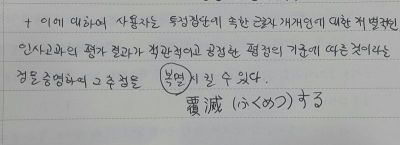 + 이에 대하여 사용자는 특정집단에 속한 근로자 개개인에 대한 개별적인
인사고과의 평가 결과가 객관적이고 공정한 평정의 기준에 따른 것이라는
점을 증명하여 그 추정을 복멸시킬 수 있다.
覆滅 (ふくめつ) する